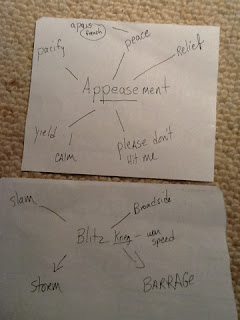 french
pacify
peace
Relief
Appeasement
yield
CALM
please don't
Hit me
slam
Broadside
Blitz Krieg - war
speed
STORM
BARRAGE